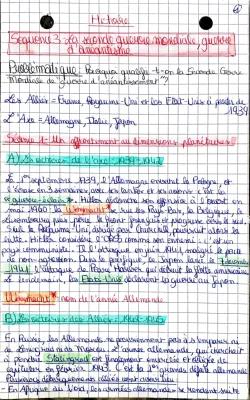 Histoire
Séquence 3 : La seconde guerre mondiale, guerre
d'anéantissement
Problématique : Pourquoi qualifie-t-on la Seconde Guerre
Mondiale de guerre d'anéantissement ?
Les Alliés = France, Royaume-Uni et les Etats-Unis à partir de
1939
L'Axe = Allemagne, Italie, Japon
Séance 1 - Un affrontement aux dimensions planétaires
A) 1939-1942
Le 1er septembre 1939, l'Allemagne envahit la Pologne, et
l'écrase en 3 semaines avec ses tanks et ses avions : c'est la
guerre-éclair*. Hitler déclenche son offensive à l'ouest en
mai 1940. La Wehrmacht* les Pays-Bas, la Belgique, le
Luxembourg puis perce le front français
Seul le Royaume-Uni dirigé par Churchill poursuit alors la
lutte. Hitler considère l'URSS comme son ennemi : c'est un
pays communiste. Il l'attaque, en juin 1941 malgré le pacte
de non-agression. Dans le pacifique, le Japon lance le 7 décembre
1941, l'attaque de Pearl Harbor qui détruit la flotte américaine.
Le lendemain, les Etats-Unis déclarent la guerre au Japon.
Wehrmacht* = nom de l'armée Allemande
B) Les victoires des Alliés, 1942-1945
En Russie, les Allemands ne parviennent pas à s'emparer ni
de Leningrad ni de Moscou. L'armée allemande, qui cherchait
à prendre Stalingrad est finalement encerclée et obligée de
capituler en février 1943. C'est la 1ère grande défaite allemande
Plusieurs débarquements alliés sont
- En Afrique du Nord, les armées allemandes se rendent suite